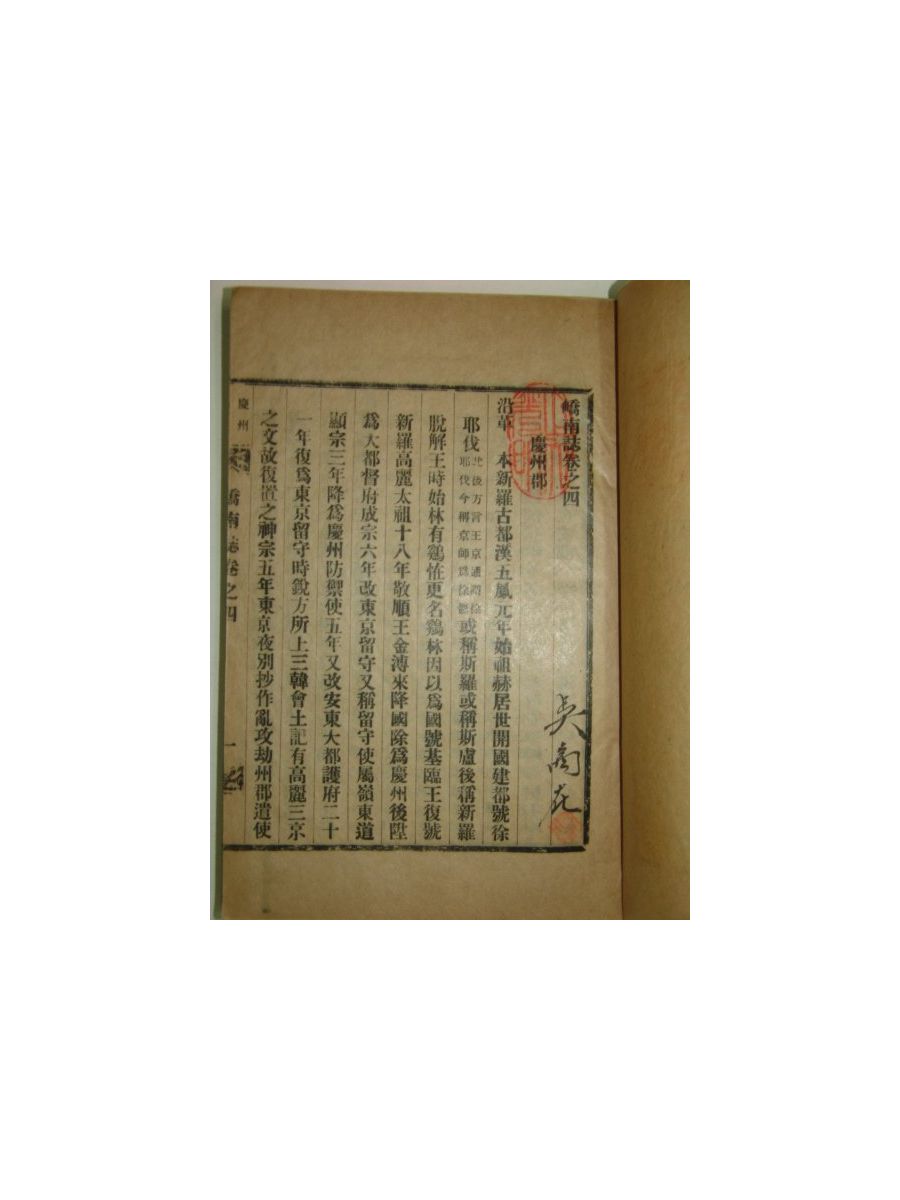 嶠南誌卷之四
慶州郡
沿革 本新羅古都漢五鳳元年始祖赫居世開國建都號徐
耶伐 後方言王京通謂徐耶伐今稱京師爲徐 或稱斯羅或稱斯盧後稱新羅
脫解王時始林有鷄恠更名鷄林因以爲國號基臨王復號
新羅高麗太祖十八年敬順王金溥來降國除爲慶州後陞
爲大都督府成宗六年改東京留守又稱留守使屬嶺東道
顯宗三年降爲慶州防禦使五年又改安東大都護府二十
一年復爲東京留守時銳方所上三韓會土記有高麗三京
之文故復置之神宗五年東京夜別抄作亂攻劫州郡遣使
慶州
嶠南誌卷之四
一